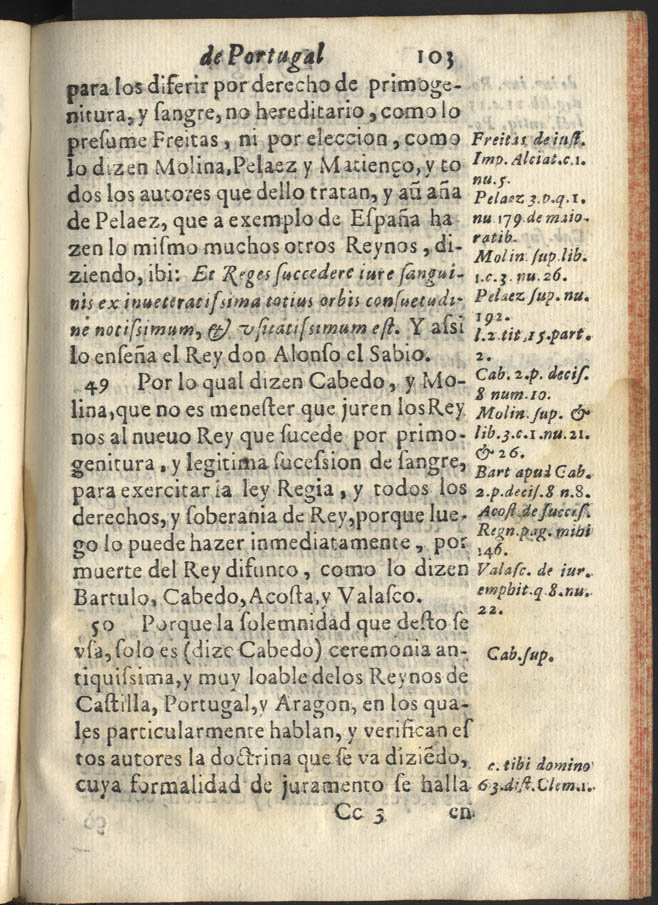 de Portugal 103
para los diferir por derecho de primoge-
nitura, y ſangre, no hereditario, como lo
preſume Freitas, ni por eleccion, como
lo dizen Molina, Pelaez y Matienço, y to
dos los autores que dello tratan, y aũ aña
de Pelaez, que a exemplo de Eſpaña ha
zen lo miſmo muchos otros Reynos, di-
ziendo, ibi: Et Reges ſuccedere iure ſangui-
nis ex inueteratiſsima totius orbis conſuetudi-
ne notiſsimum, & vſitatiſsimum eſt. Y aſsi
lo enſeña el Rey don Alonſo el Sabio.
49 Por lo qual dizen Cabedo, y Mo-
lina, que no es meneſter que juren los Rey
nos al nueuo Rey que ſucede por primo-
genitura, y legitima ſuceſsion de ſangre,
para exercitar la ley Regia, y todos los
derechos, y ſoberania de Rey, porque lue-
go lo puede hazer inmediatamente, por
muerte del Rey difunto, como lo dizen
Bartulo, Cabedo, Acoſta, y Valaſco.
50 Porque la ſolemnidad que deſto ſe
vſa, ſolo es (dize Cabedo) ceremonia an-
tiquiſsima, y muy loable delos Reynos de
Caſtilla, Portugal, y Aragon, en los qua-
les particularmente hablan, y verifican eſ
tos autores la doctrina que ſe va diziẽdo,
cuya formalidad de juramento ſe halla
Cc 3 en
Freitas de iuſt.
Imp. Alciat. c. 1.
nu. 5.
Pelaez 3. p. q. 1.
nu 179 de maio-
ratib.
Molin. ſup. lib.
1. c. 3. nu. 26.
Pelaez ſup. nu.
192.
l. 2. tit. 15. part.
2.
Cab. 2. p. deciſ.
8 num. 10.
Molin. ſup. &
lib. 3. c. 1. nu. 21.
& 26.
Bart apud Cab.
2. p. deciſ. 8 n. 8.
Acoſt de ſucceſ.
Regn. pag. mihi
146.
Valaſc. de iur.
emphit. q 8. nu.
22.
Cab. ſup.
c. tibi domino
63. diſt. Clem. 1.